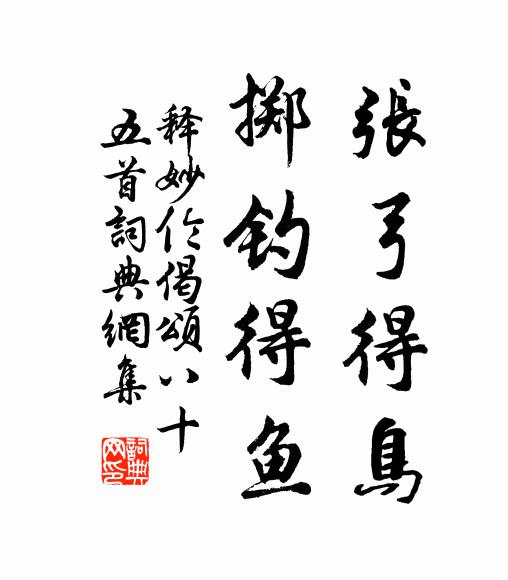 張弓得鳥
掷钓得鱼
释妙伦偈頌八十
五首詞典網集
詞典网印